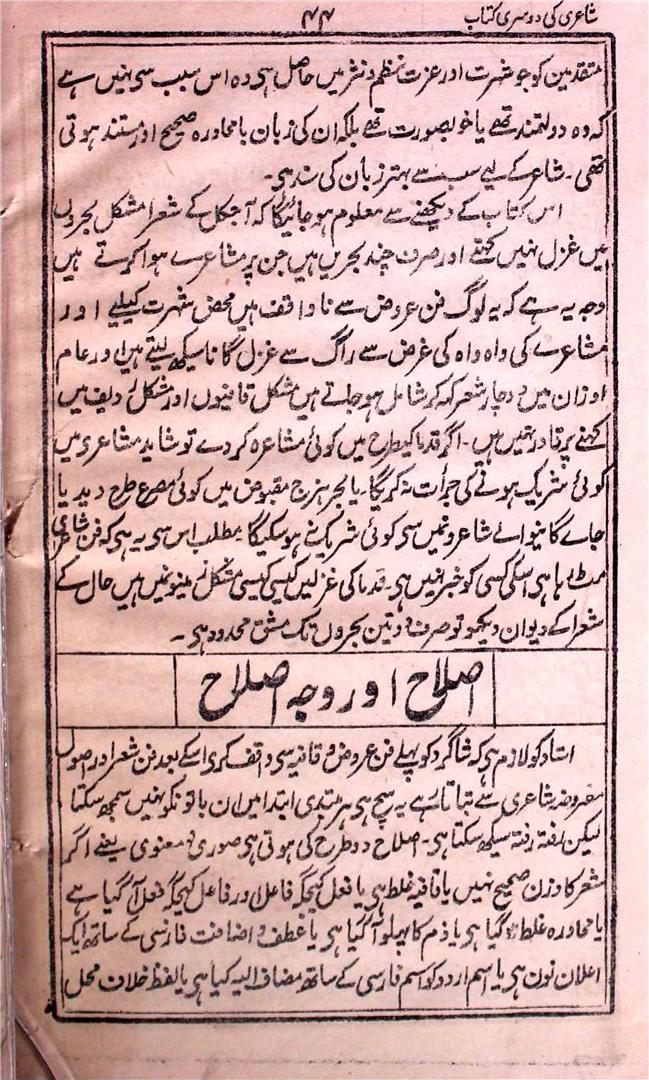 شاعری کی دوسری کتاب
۴۴
متقدمین کو جو شہرت اور عزت نظم و نثر میں حاصل ہی وہ اس سبب سی نہیں ہے
کہ وہ دولتمند تھے یا خوبصورت تھے بلکہ ان کی زبان بامحاورہ صحیح اور مستند ہوتی
تھی۔ شاعر کے لیے سب سے بہتر زبان کی سند ہی۔
اس کتاب کے دیکھنے سے معلوم ہو جائیگا کہ آجکل کے شعرا مشکل بحروں
میں غزل نہیں کہتے اور صرف چند بحریں ہیں جن پر مشاعرے ہوا کرتے ہیں
وجہ یہ ہے کہ یہ لوگ فن عروض سے ناواقف ہیں محض شہرت کیلیے اور
مشاعرے کی واہ واہ کی غرض سے راگ سے غزل گانا سیکھ لیتے ہیں اور عام
اوزان میں دو چار شعر کہہ کر شامل ہو جاتے ہیں مشکل قافیوں اور مشکل ردیف میں
کہنے پر قادر نہیں ہیں۔ اگر قدما کیطرح میں کوئی مشاعرہ کر دے تو شاید مشاعری میں
کوئی شریک ہونے کی جرأت نہ کریگا۔ یا بحر ہزج مقبوض میں کوئی مصرع طرح دیدیا
جاے گانیوالے شاعرونمیں سی کوئی شریک نہ ہو سکیگا مطلب اس سی یہ ہی کہ فن شاعری
مٹ رہا ہی اسکی کسی کو خبر نہیں ہی۔ قدما کی غزلیں کیسی کیسی مشکل زمینونمیں ہیں حال کے
شعرا کے دیوان دیکھو تو صرف دو تین بحروں تک مشق محدود ہی۔
اصلاح اور وجہ اصلاح
استاد کو لازم ہی کہ شاگرد کو پہلے فن عروض و قافیہ سی واقف کری اسکے بعد فن شعر اور اصول
مفروضہ شاعری سے بتاتا رہے یہ سچ ہی ہر مبتدی ابتدا میں ان باتونکو نہیں سمجھ سکتا
لیکن رفتہ رفتہ سیکھ سکتا ہی۔ اصلاح دو طرح کی ہوتی ہی صوری و معنوی یعنے اگر
شعر کا وزن صحیح نہیں یا قافیہ غلط ہی یا فعل کیجگہ فاعل اور فاعل کیجگہ فعل آ گیا ہے
یا محاورہ غلط ہو گیا ہی یا ذم کا پہلو آ گیا ہی یا عطف و اضافت فارسی کے ساتھ ایک
اعلان نون ہی یا اسم اردو کو اسم فارسی کے ساتھ مضاف الیہ کیا ہی یا لفظ خلاف محل